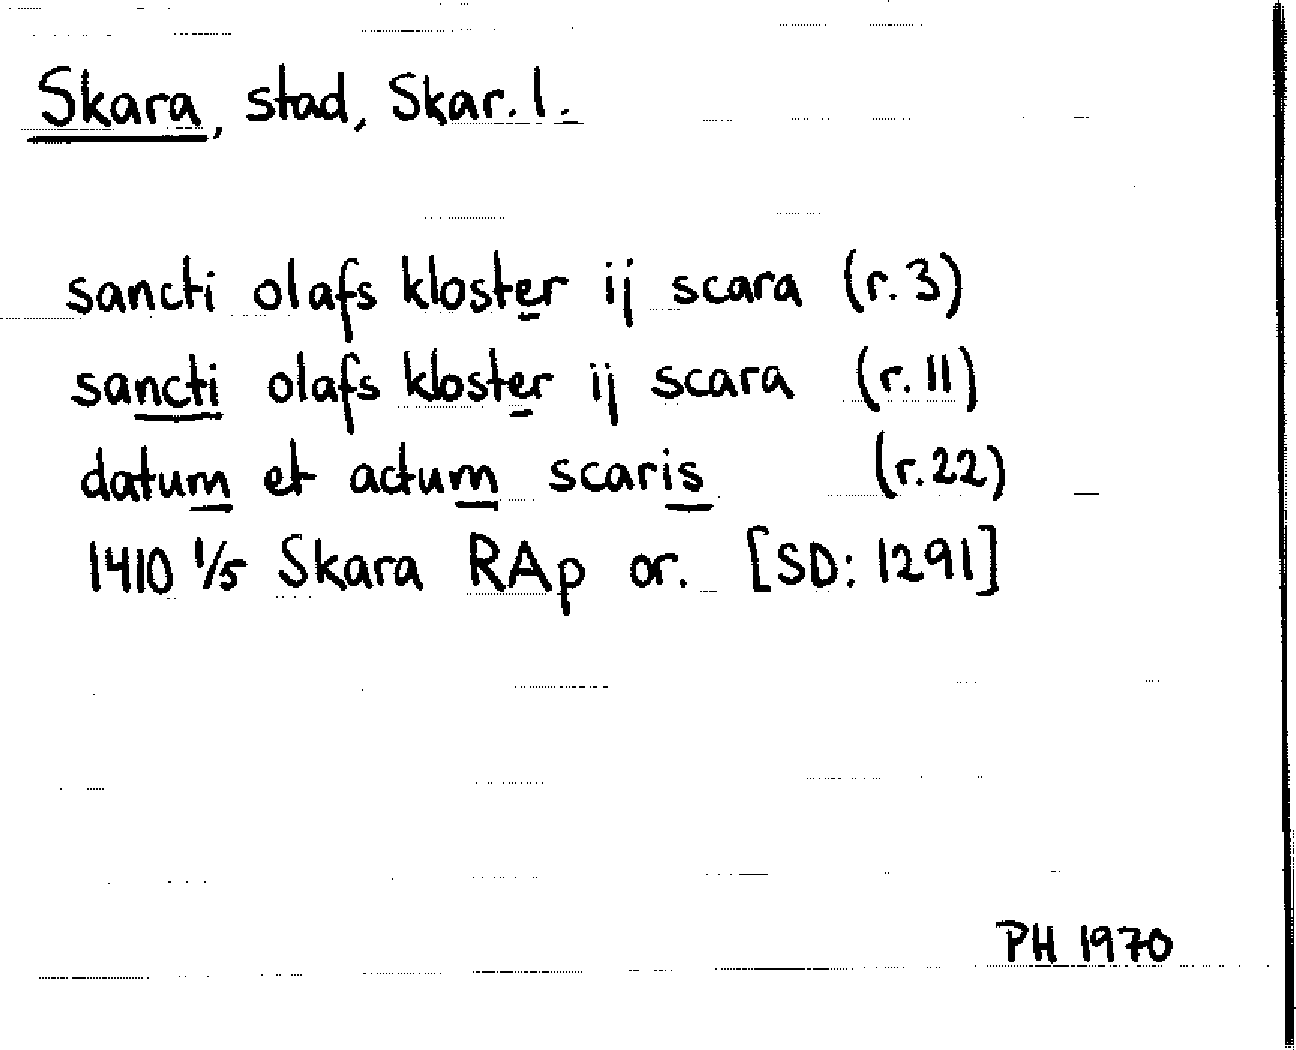 Skara, stad, Skar. l.
sancti olafs kloster ij scara (r. 3)
sancti olafs kloster ij scara (r. 11)
datum et actum scaris (r. 22)
1410 1/5 Skara RAp or. [SD: 1291]
PH 1970